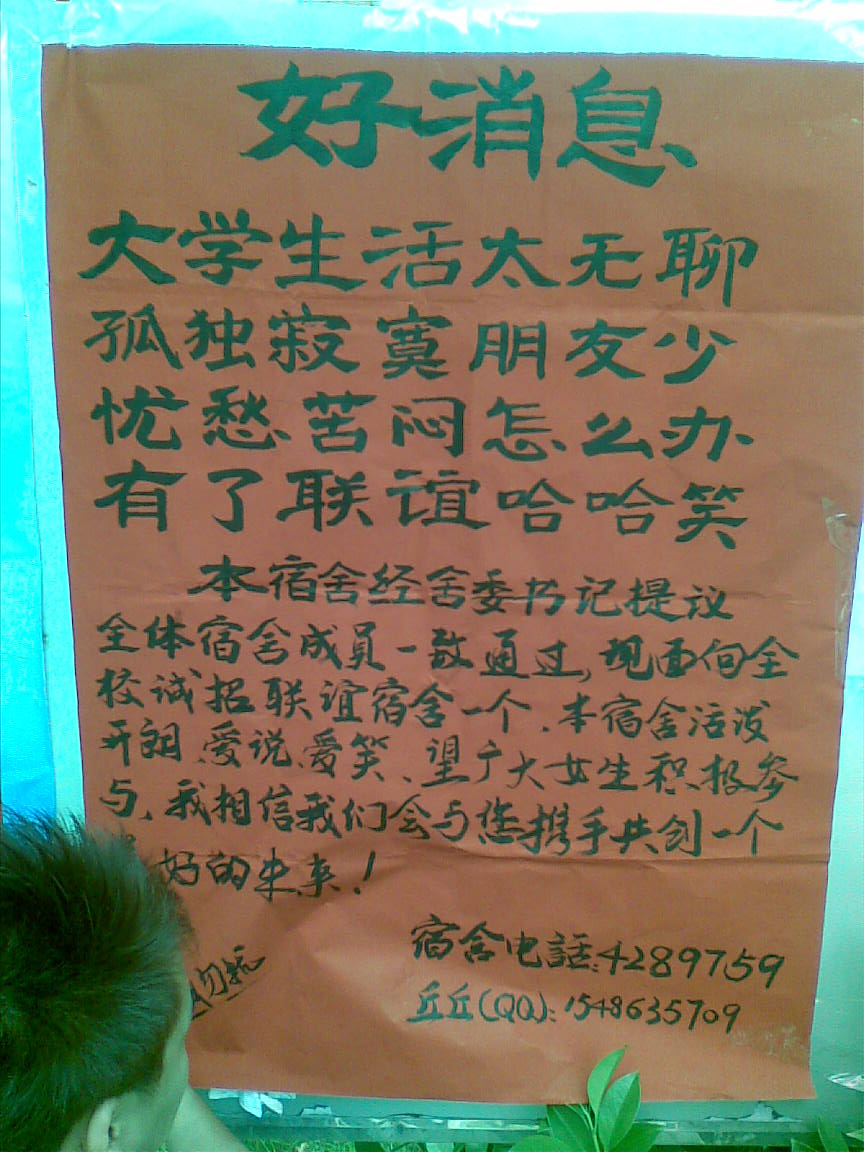 好消息
大学生活太无聊
孤独寂寞朋友少
忧愁苦闷怎么办
有了联谊哈哈笑
本宿舍经舍委书记提议
全体宿舍成员一致通过,现面向全
校诚招联谊宿舍一个、本宿舍活泼
开朗、爱说、爱笑、望广大女生积极参
与、我相信我们会与您携手共创一个
好的未来!
宿舍电話:4289759
勿抚
丘丘(QQ):1548635709